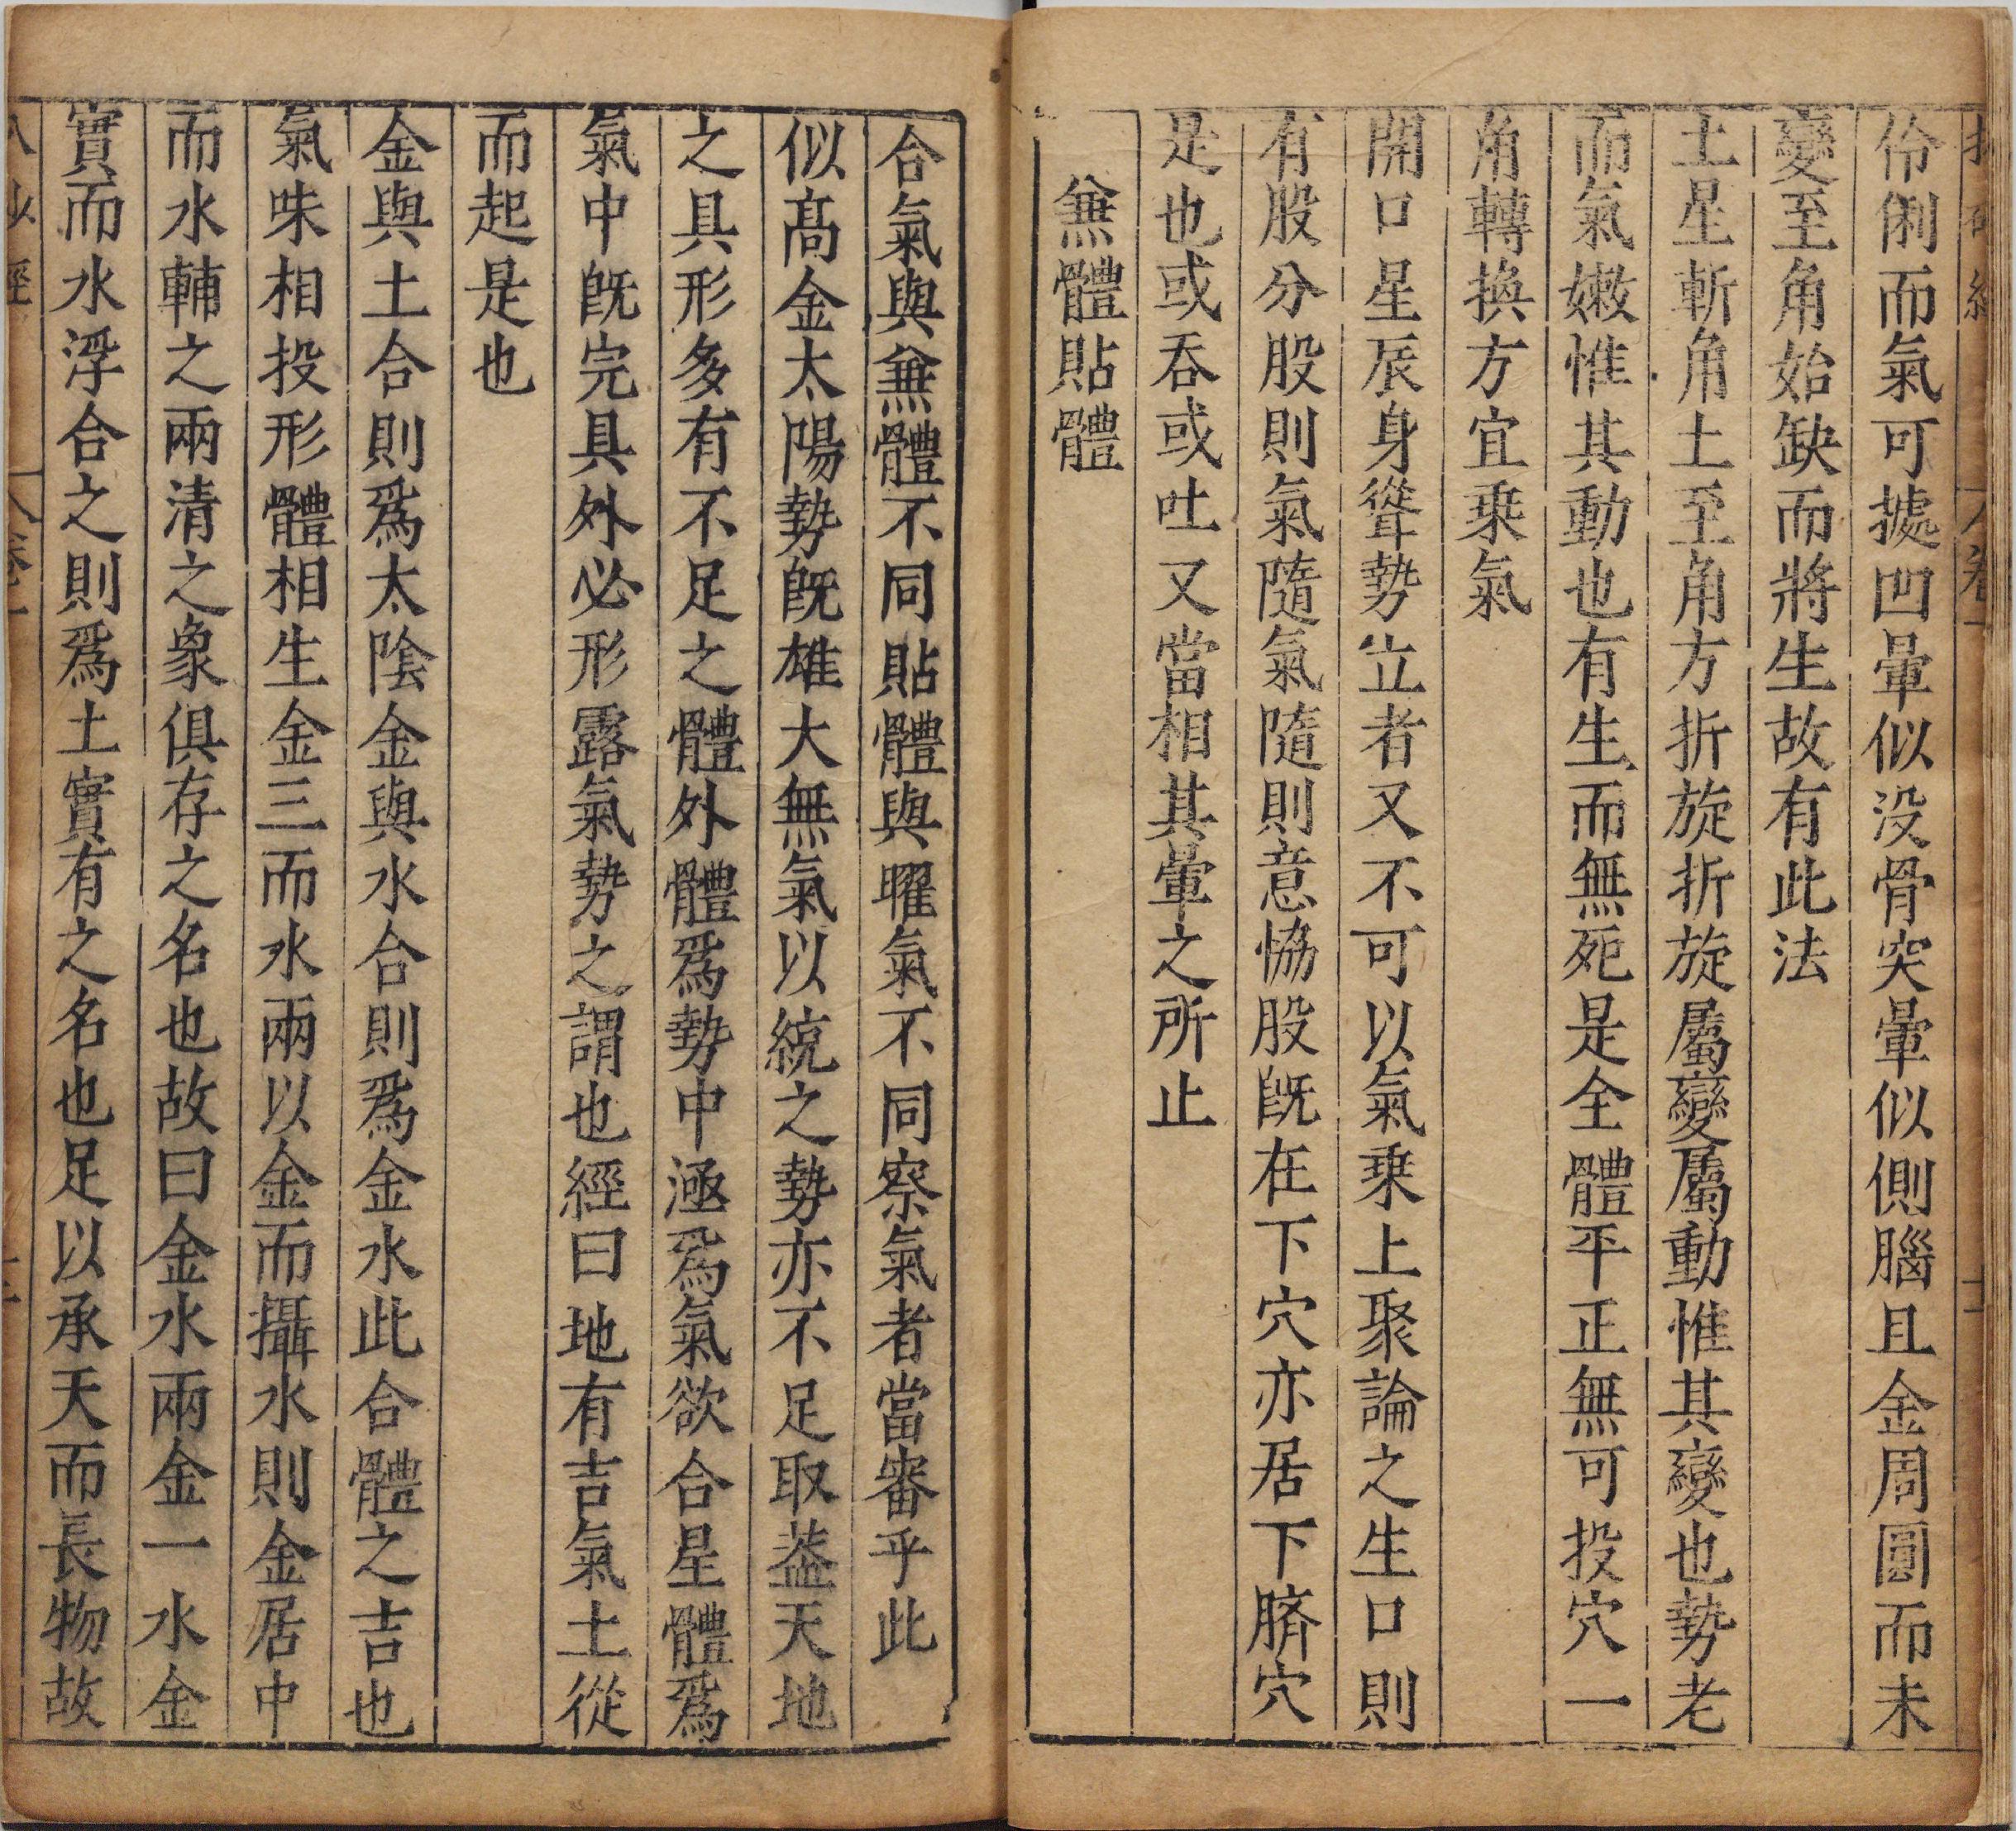 伶俐而氣可據凹暈似没骨突暈似側腦且金周圓而未
變至角始缺而將生故有此法
土星斬角土至角方折旋折旋屬變屬動惟其變也勢老
而氣嫩惟其動也有生而無死是全體平正無可投穴一
角轉換方宜乗氣
開口星辰身聳勢立者又不可以氣乗上聚論之生口則
有股分股則氣隨氣隨則意恊股旣在下穴亦居下臍穴
是也或吞或吐又當相其暈之所止
兼體貼體
合氣與兼體不同貼體與曜氣不同察氣者當審乎此
似髙金太陽勢旣雄大無氣以統之勢亦不足取葢天地
之具形多有不足之體外體爲勢中極爲氣欲合星體爲
氣中旣完具外必形露氣勢之謂也經曰地有吉氣土從
而起是也
金與土合則爲太陰金與水合則爲金水此合體之吉也
氣味相投形體相生金三而水兩以金而攝水則金居中
而水輔之兩清之象俱存之名也故曰金水兩金一水金
實而水浮合之則爲土實有之名也足以承天而長物故